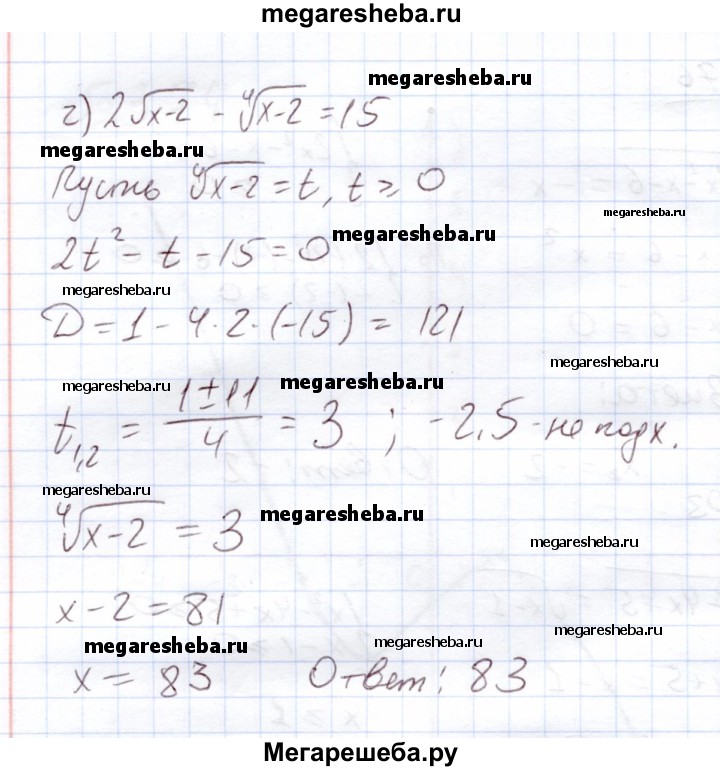 megaresheba.ru
megaresheba.ru
г) 2√x-2 - ⁴√x-2 = 15
megaresheba.ru
Пусть ⁴√x-2 = t, t ≥ 0
megaresheba.ru
2t² - t - 15 = 0 megaresheba.ru
megaresheba.ru
D = 1 - 4·2·(-15) = 121
megaresheba.ru
megaresheba.ru megaresheba.ru
t₁,₂ = (1 ± 11)/4 = 3 ; -2,5 - не подх.
megaresheba.ru
⁴√x-2 = 3 megaresheba.ru
megaresheba.ru
x - 2 = 81
megaresheba.ru
megaresheba.ru megaresheba.ru
x = 83 Ответ: 83
Мегарешеба.ру